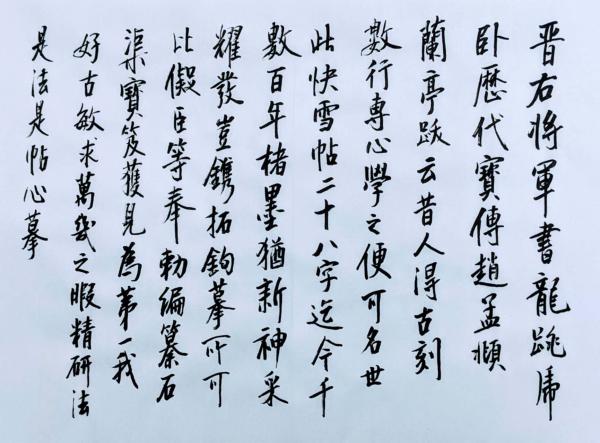 晋右將軍書龍跳虎
卧歷代寶傳趙孟頫
蘭亭跋云昔人得古刻
數行專心學之便可名世
此快雪帖二十八字迄今千
數百年楮墨猶新神采
耀發豈鐫拓鉤摹所可
比儗臣等奉勅編纂石
渠寶笈獲見為第一我
好古敏求萬幾之暇精研法
是法是帖心摹